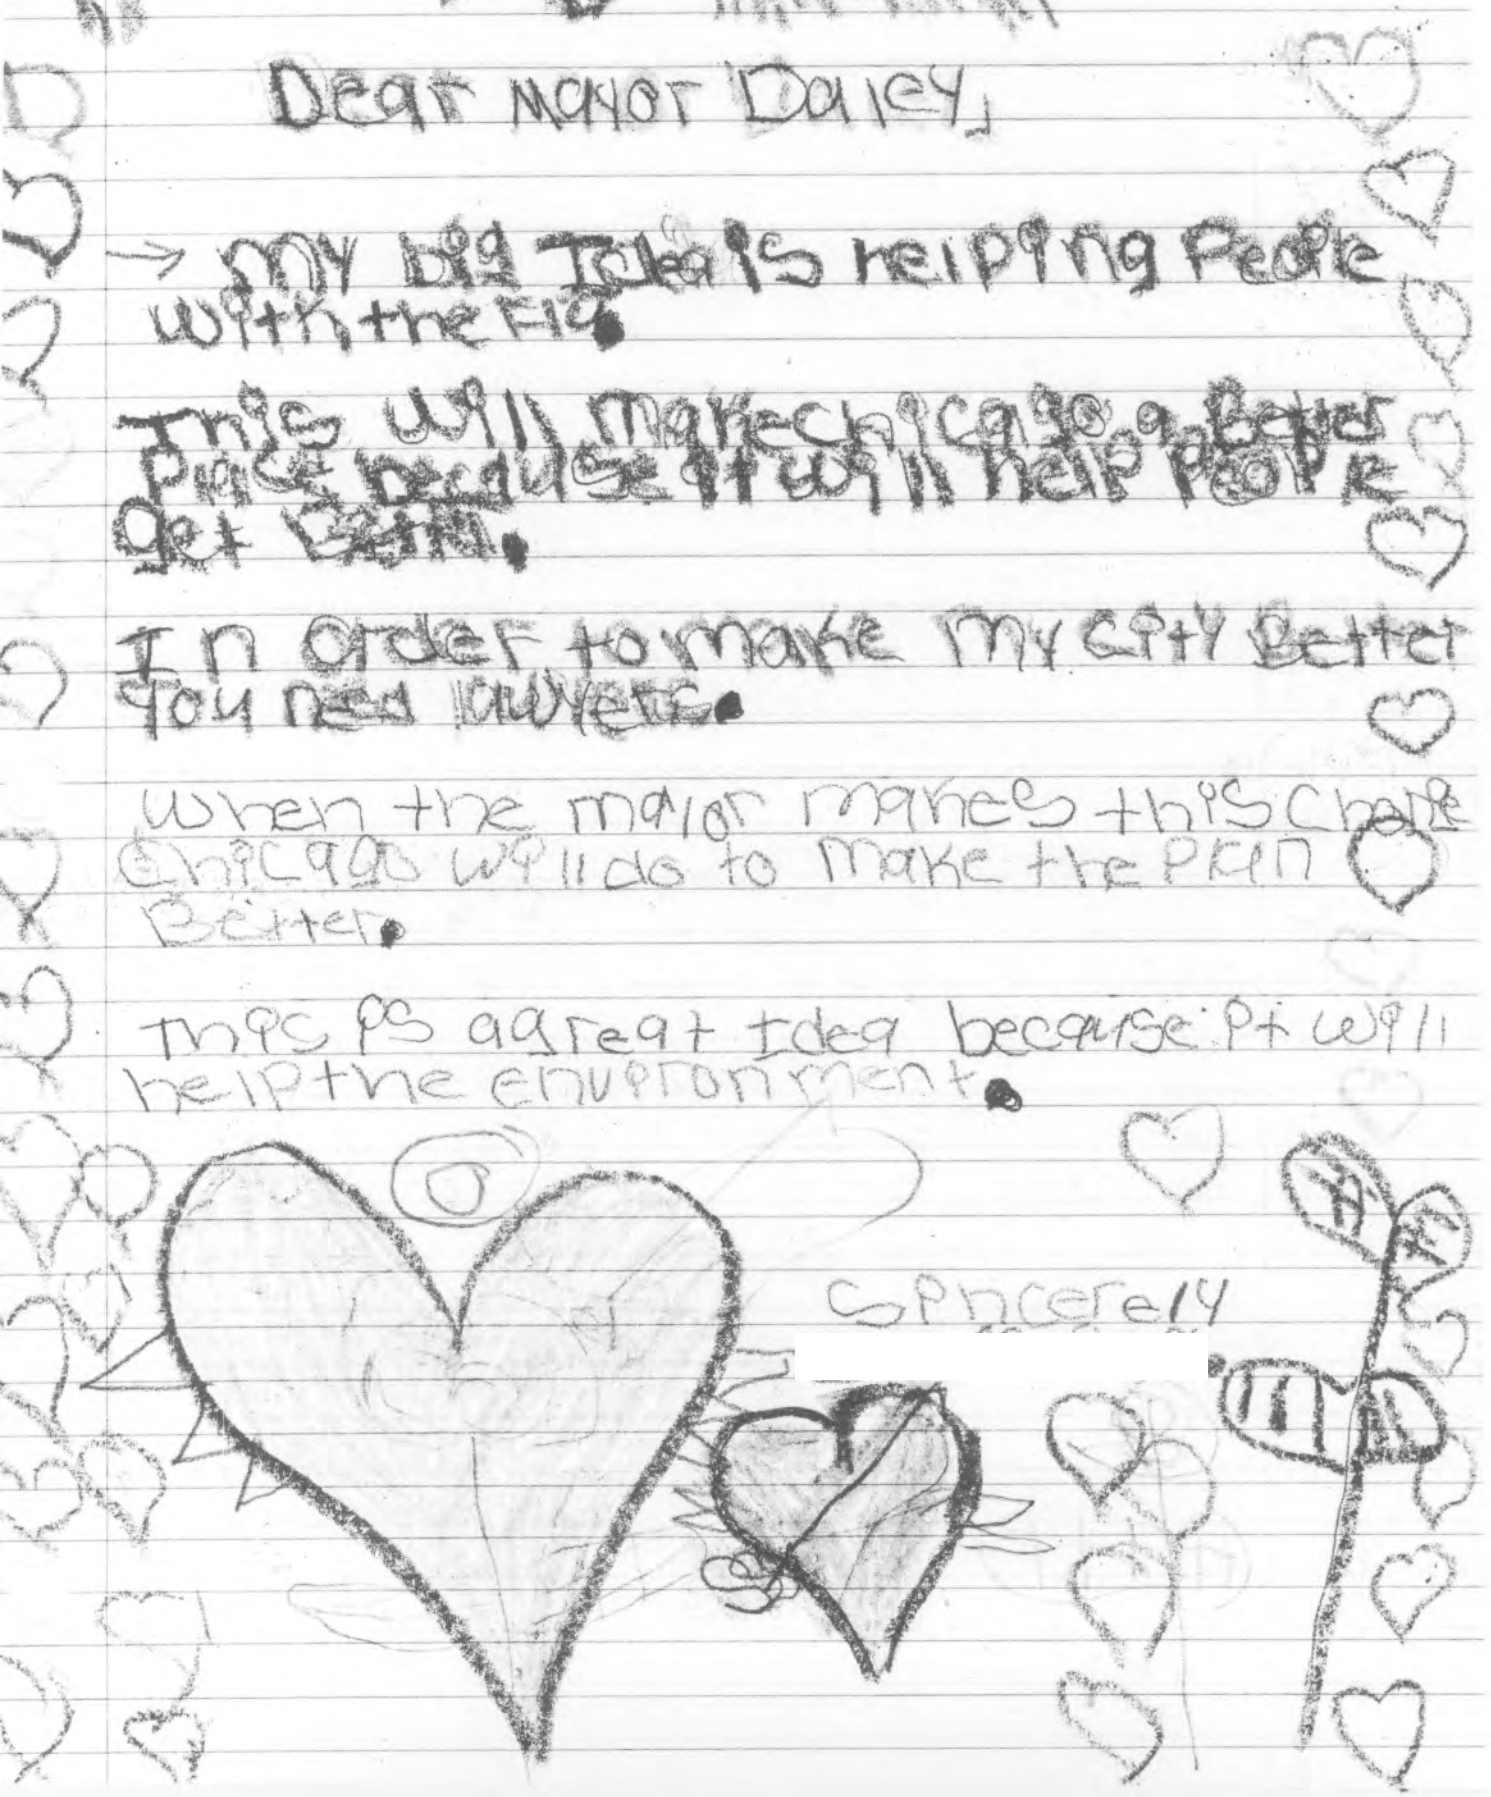 Dear Mayor Daley,
→ My big Idea is helping People
with the Flu.
This will make chicago a Better
Place because it will help people
get Better.
In order to make My city Better
you need lawyers.
When the mayor makes this change
Chicago will do to make the plan
Better.
This is a great Idea because it will
help the environment.
Sincerely